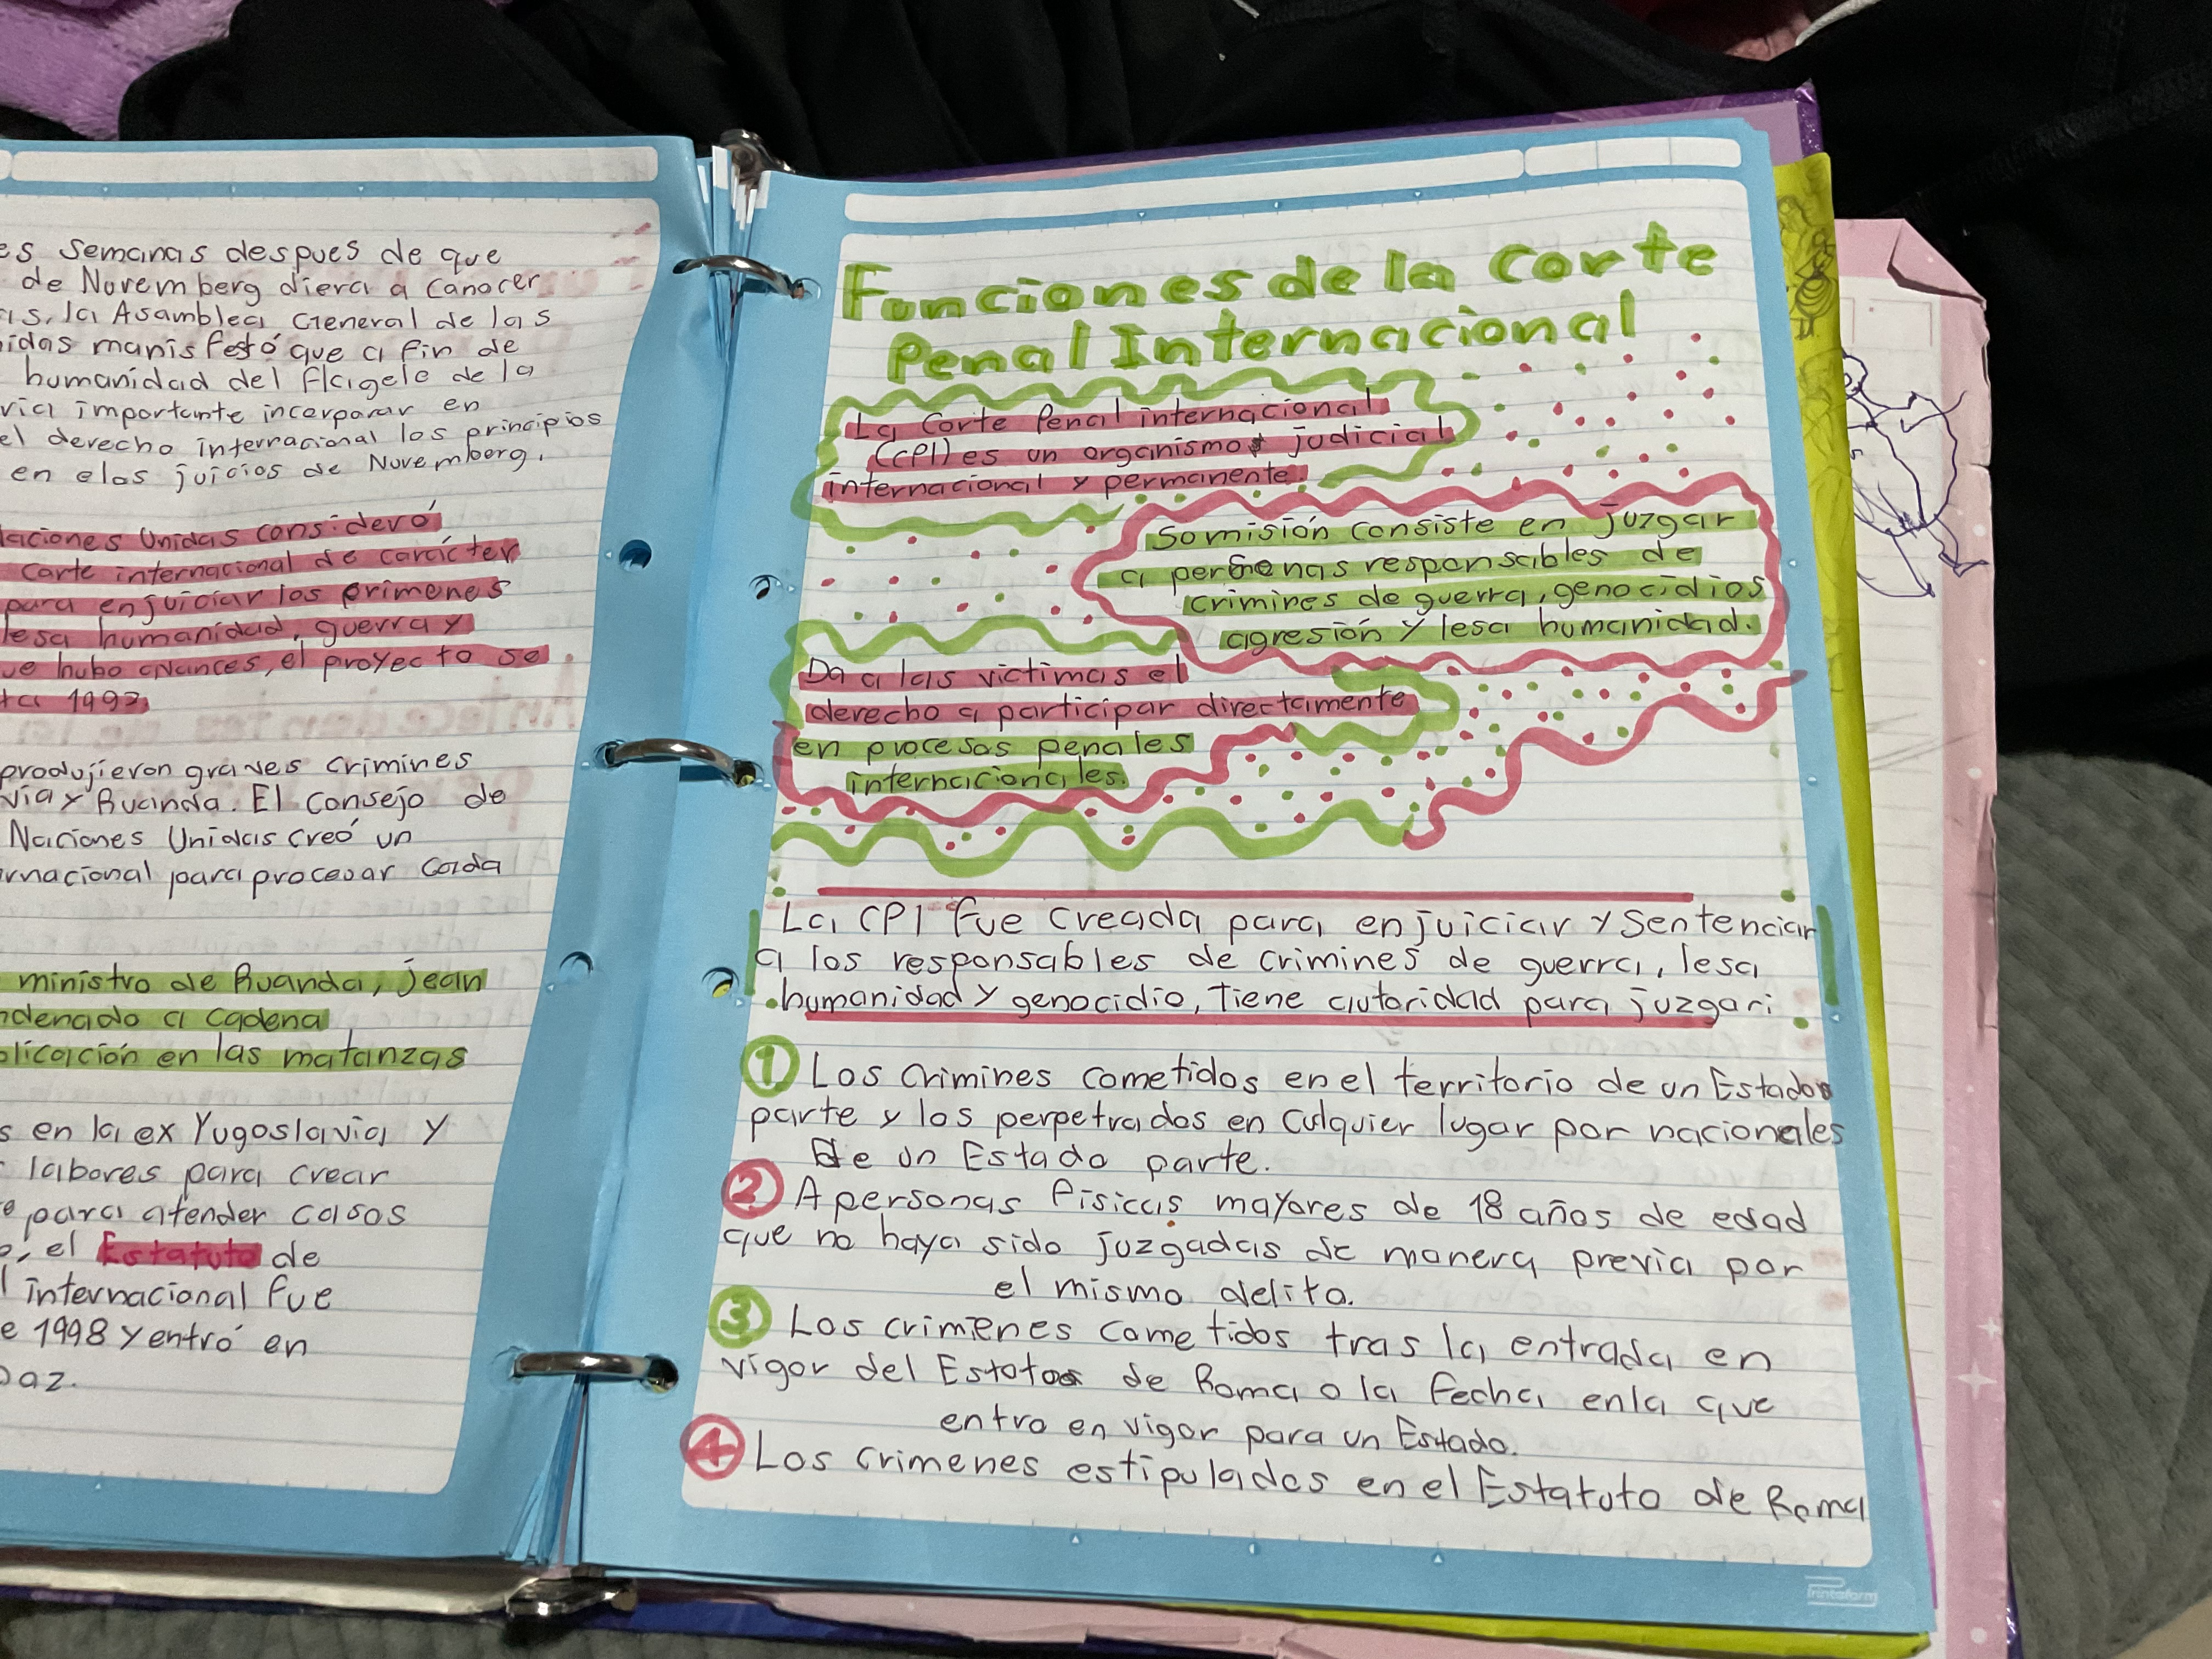 es semanas despues de que
de Nuremberg diera a canocer
as, la Asamblea General de las
idas manisfestó que a fin de
humanidad del flagelo de la
ria importante incorporar en
el derecho internacional los principios
en elos juicios de Nuremberg.
Naciones Unidas consideró
Corte internacional de carácter
para enjuiciar los primenes
lesa humanidad, guerra y
ue hubo avances, el proyecto se
ta 1992.
produjieron graves crimines
via y Ruanda. El Consejo de
Naciones Unidas creó un
rnacional para procesar cada
ministro de Ruanda, jean
ndenado a cadena
plicación en las matanzas
s en la ex Yugoslavia y
labores para crear
para atender casos
o, el Estatuto de
l internacional fue
e 1998 y entró en
paz.
Funciones de la Corte
Penal Internacional
La Corte Penal internacional
(CPI) es un organismo judicial
internacional y permanente.
So misión consiste en juzgar
a personas responsables de
crimines de guerra, genocidios
agresión y lesa humanidad.
Da a las victimas el
derecho a participar directamente
en procesos penales
internacionales.
La CPI fue creada para enjuiciar y Sentenciar
a los responsables de crimines de guerra, lesa
humanidad y genocidio, Tiene autoridad para juzgar:
1 Los Crimines cometidos en el territorio de un Estado
parte y los perpetrados en culquier lugar por nacionales
De un Estado parte.
2 A personas fisicas mayores de 18 años de edad
que no haya sido juzgadas de manera previa por
el mismo delito.
3 Los crimenes cometidos tras la entrada en
vigor del Estatoo de Roma o la fecha enla que
entro en vigor para un Estado.
4 Los crimenes estipulados en el Estatuto de Roma
Printaform